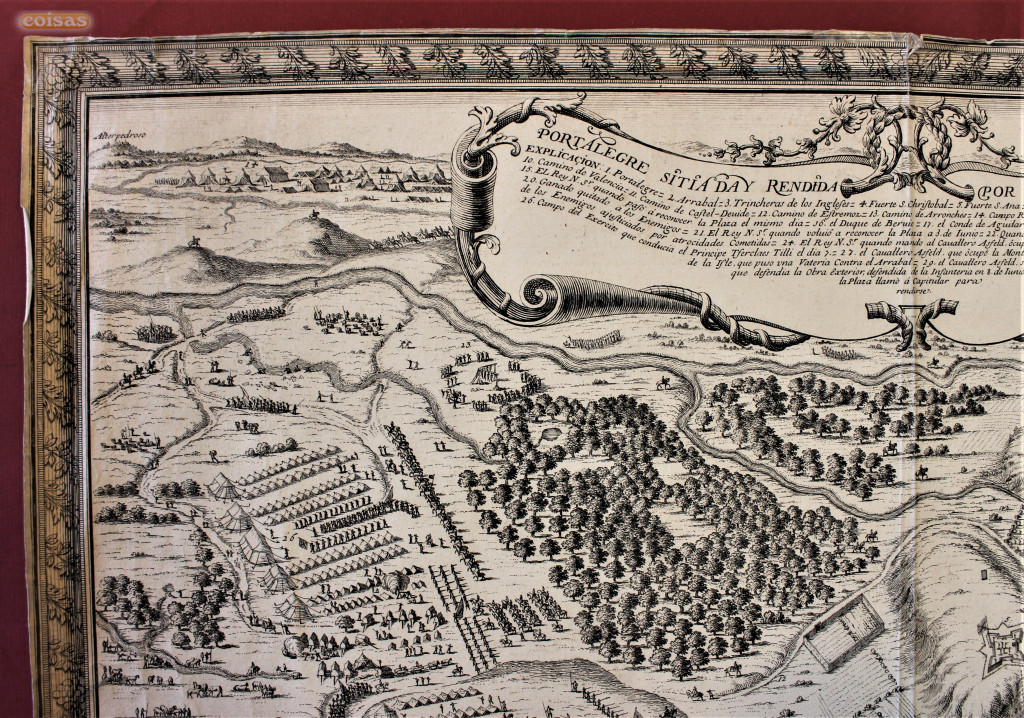 coisas
Alterpedroso
PORTALEGRE SITIADA Y RENDIDA (POR
EXPLICAÇION. 1. Portalegre 2. Arrabal 3. Trincheras de los Ingleses 4. Fuerte S. Christobal 5. Fuerte S. Ana
10. Camino de Valencia Camino de Castel-Deuide 12. Camino de Estremoz 13. Camino de Arronches 14. Campo
15. EL Rey N. Sr. quando passó à reconocer la Plaza el mismo dia 16. el Duque de Beruic 17. el Conde de Aguilar
20. Ganado quitado à los Enemigos 21. El Rey N. Sr. quando voluió a reconocer la Plaza a 3 de Iunio
de los Enemigos ajustiziados por atrocidades Cometidas 24. El Rey N. Sr. quando mandó al Cauallero Asfeld
26. Campo del Exercito que conducia el Principe Tserclaes Tilli el dia 7. 27. el Cauallero Asfeld, que ocupó la
de la Isle, que puso vna Vateria Contra el Arrabal 29. el Cauallero Asfeld
que defendia la Obra Exterior, defendida de la Infanteria en 8 de Iunio
la Plaza llamó à Capitular para
rendirse.